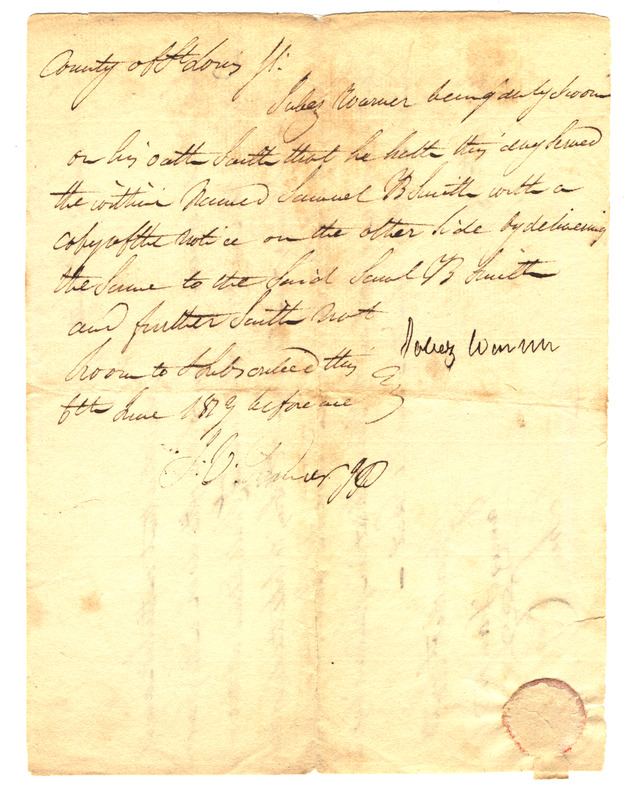 County of St Louis Ss.
Jabez Warner being duly sworn
on his oath Saith that he hath this day Served
the within Named Samuel B Smith with a
copy of the Notice on the other Side by delivering
the Same to the Said Saml B Smith
and further Saith Not
Jabez Warner
Sworn to & Subscribed this
6th June 1819 before me
JP